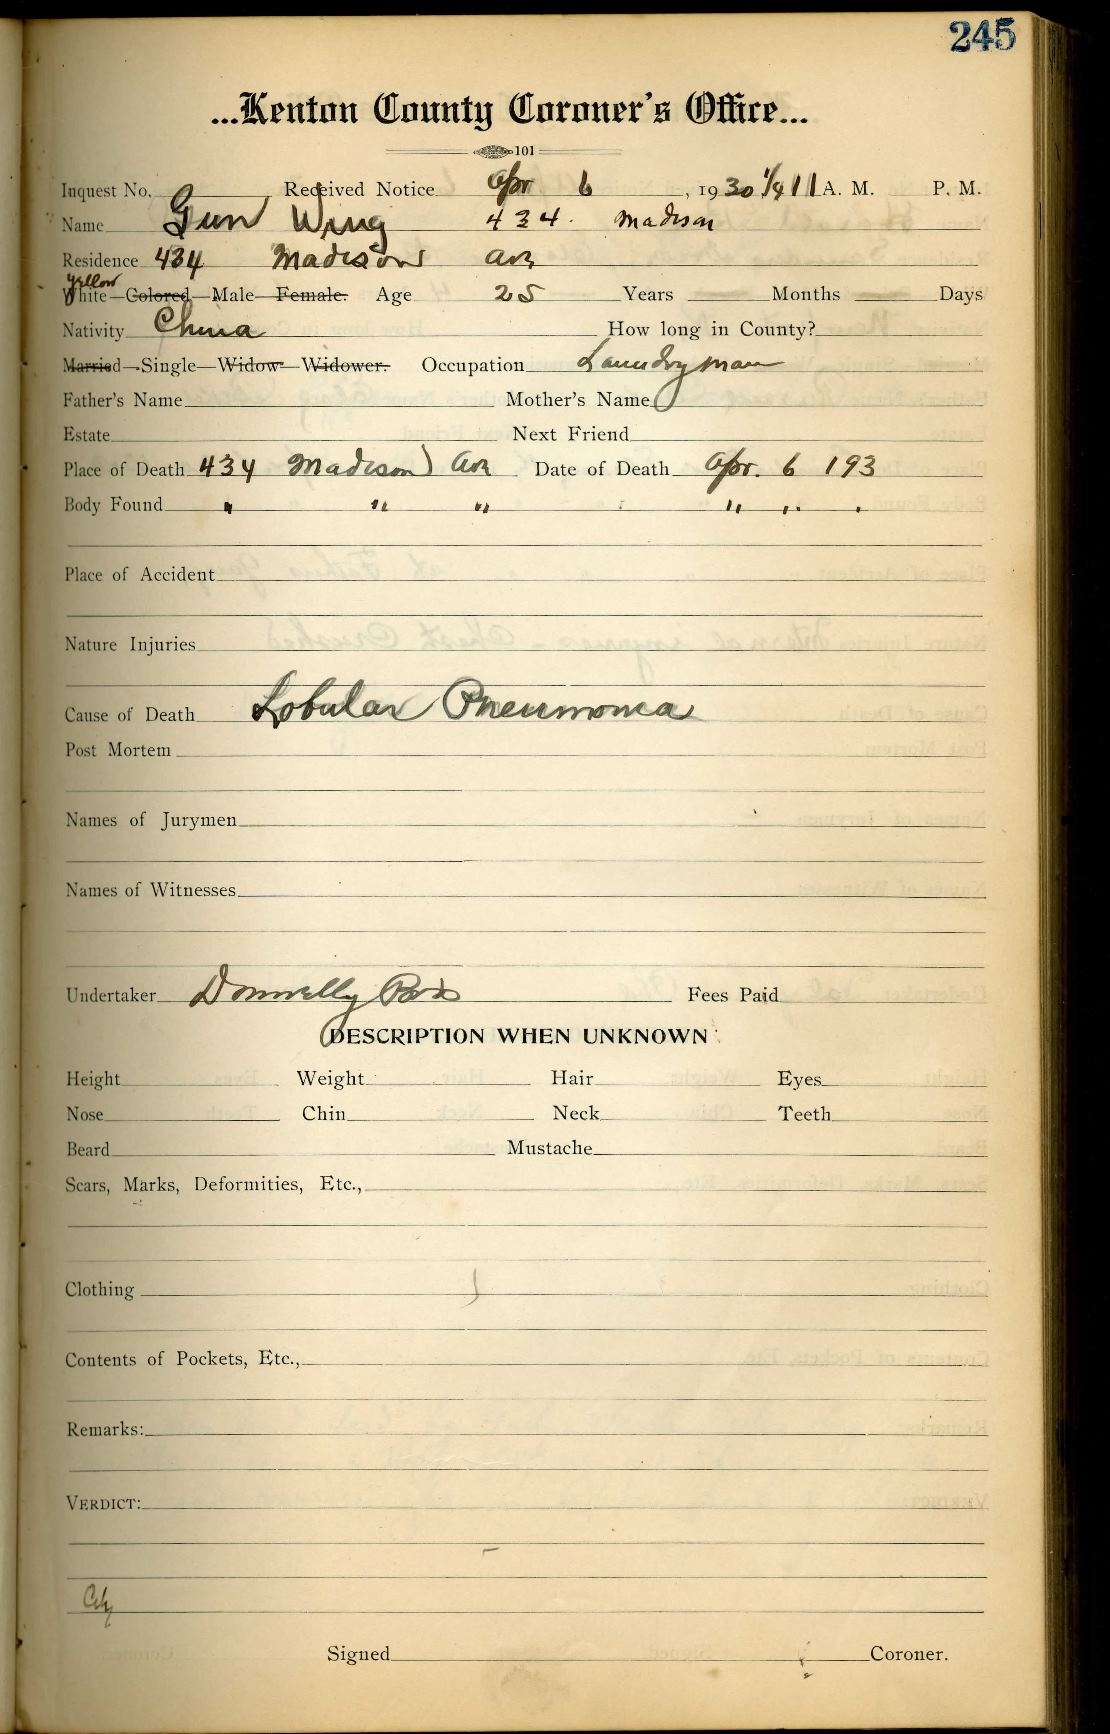 245
...Kenton County Coroner's Office...
101
Inquest No. Received Notice Apr 6, 1930 11 A. M. P. M.
Name Gun Wing 434. Madison
Residence 434 Madison Ave
yellow
White—Colored—Male—Female. Age 25 Years Months Days
Nativity China How long in County?
Married—Single—Widow—Widower. Occupation Laundryman
Father's Name Mother's Name
Estate Next Friend
Place of Death 434 Madison Ave Date of Death Apr. 6 193
Body Found " " " " " "
Place of Accident
Nature Injuries
Cause of Death Lobular Pneumonia
Post Mortem
Names of Jurymen
Names of Witnesses
Undertaker Donnelly Bros Fees Paid
DESCRIPTION WHEN UNKNOWN
Height Weight Hair Eyes
Nose Chin Neck Teeth
Beard Mustache
Scars, Marks, Deformities, Etc.,
Clothing
Contents of Pockets, Etc.,
Remarks:
VERDICT:
City
Signed Coroner.